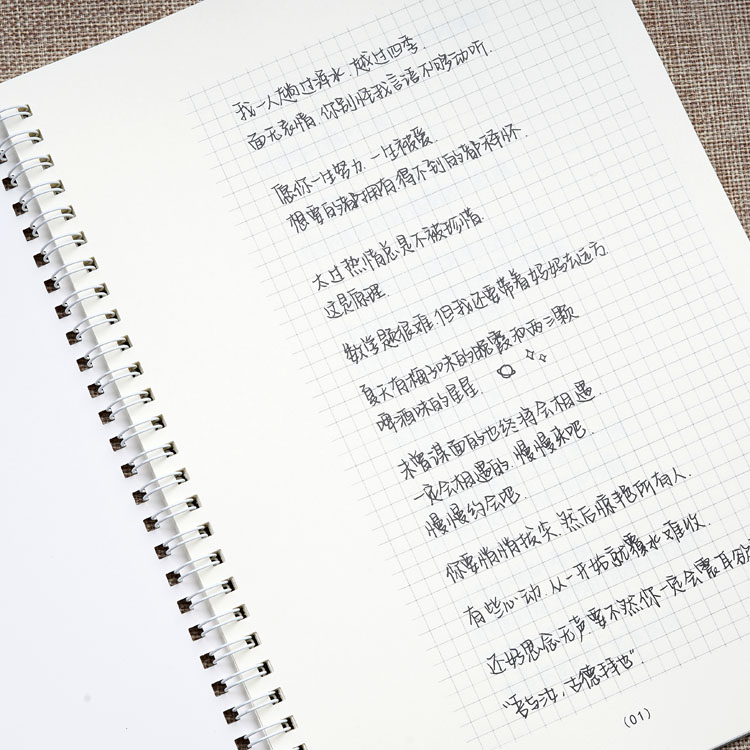 我一人趟过浑水.越过四季.
面无表情.你别怪我言语不够动听.
愿你一生努力.一生被爱
想要的都拥有.得不到的都释怀.
太过热情总是不被珍惜.
这是原理.
数学题很难.但我还要带着妈妈去远方.
夏天有梅子味的晚霞和两三颗
啤酒味的星星.
未曾谋面的也终将会相遇.
一定会相遇的.慢慢来吧.
慢慢约会吧.
你要悄悄拔尖.然后惊艳所有人.
有些心动.从一开始就覆水难收.
还好思念无声.要不然你一定会震耳欲
“吾与汝,古德拜也”.
(01)